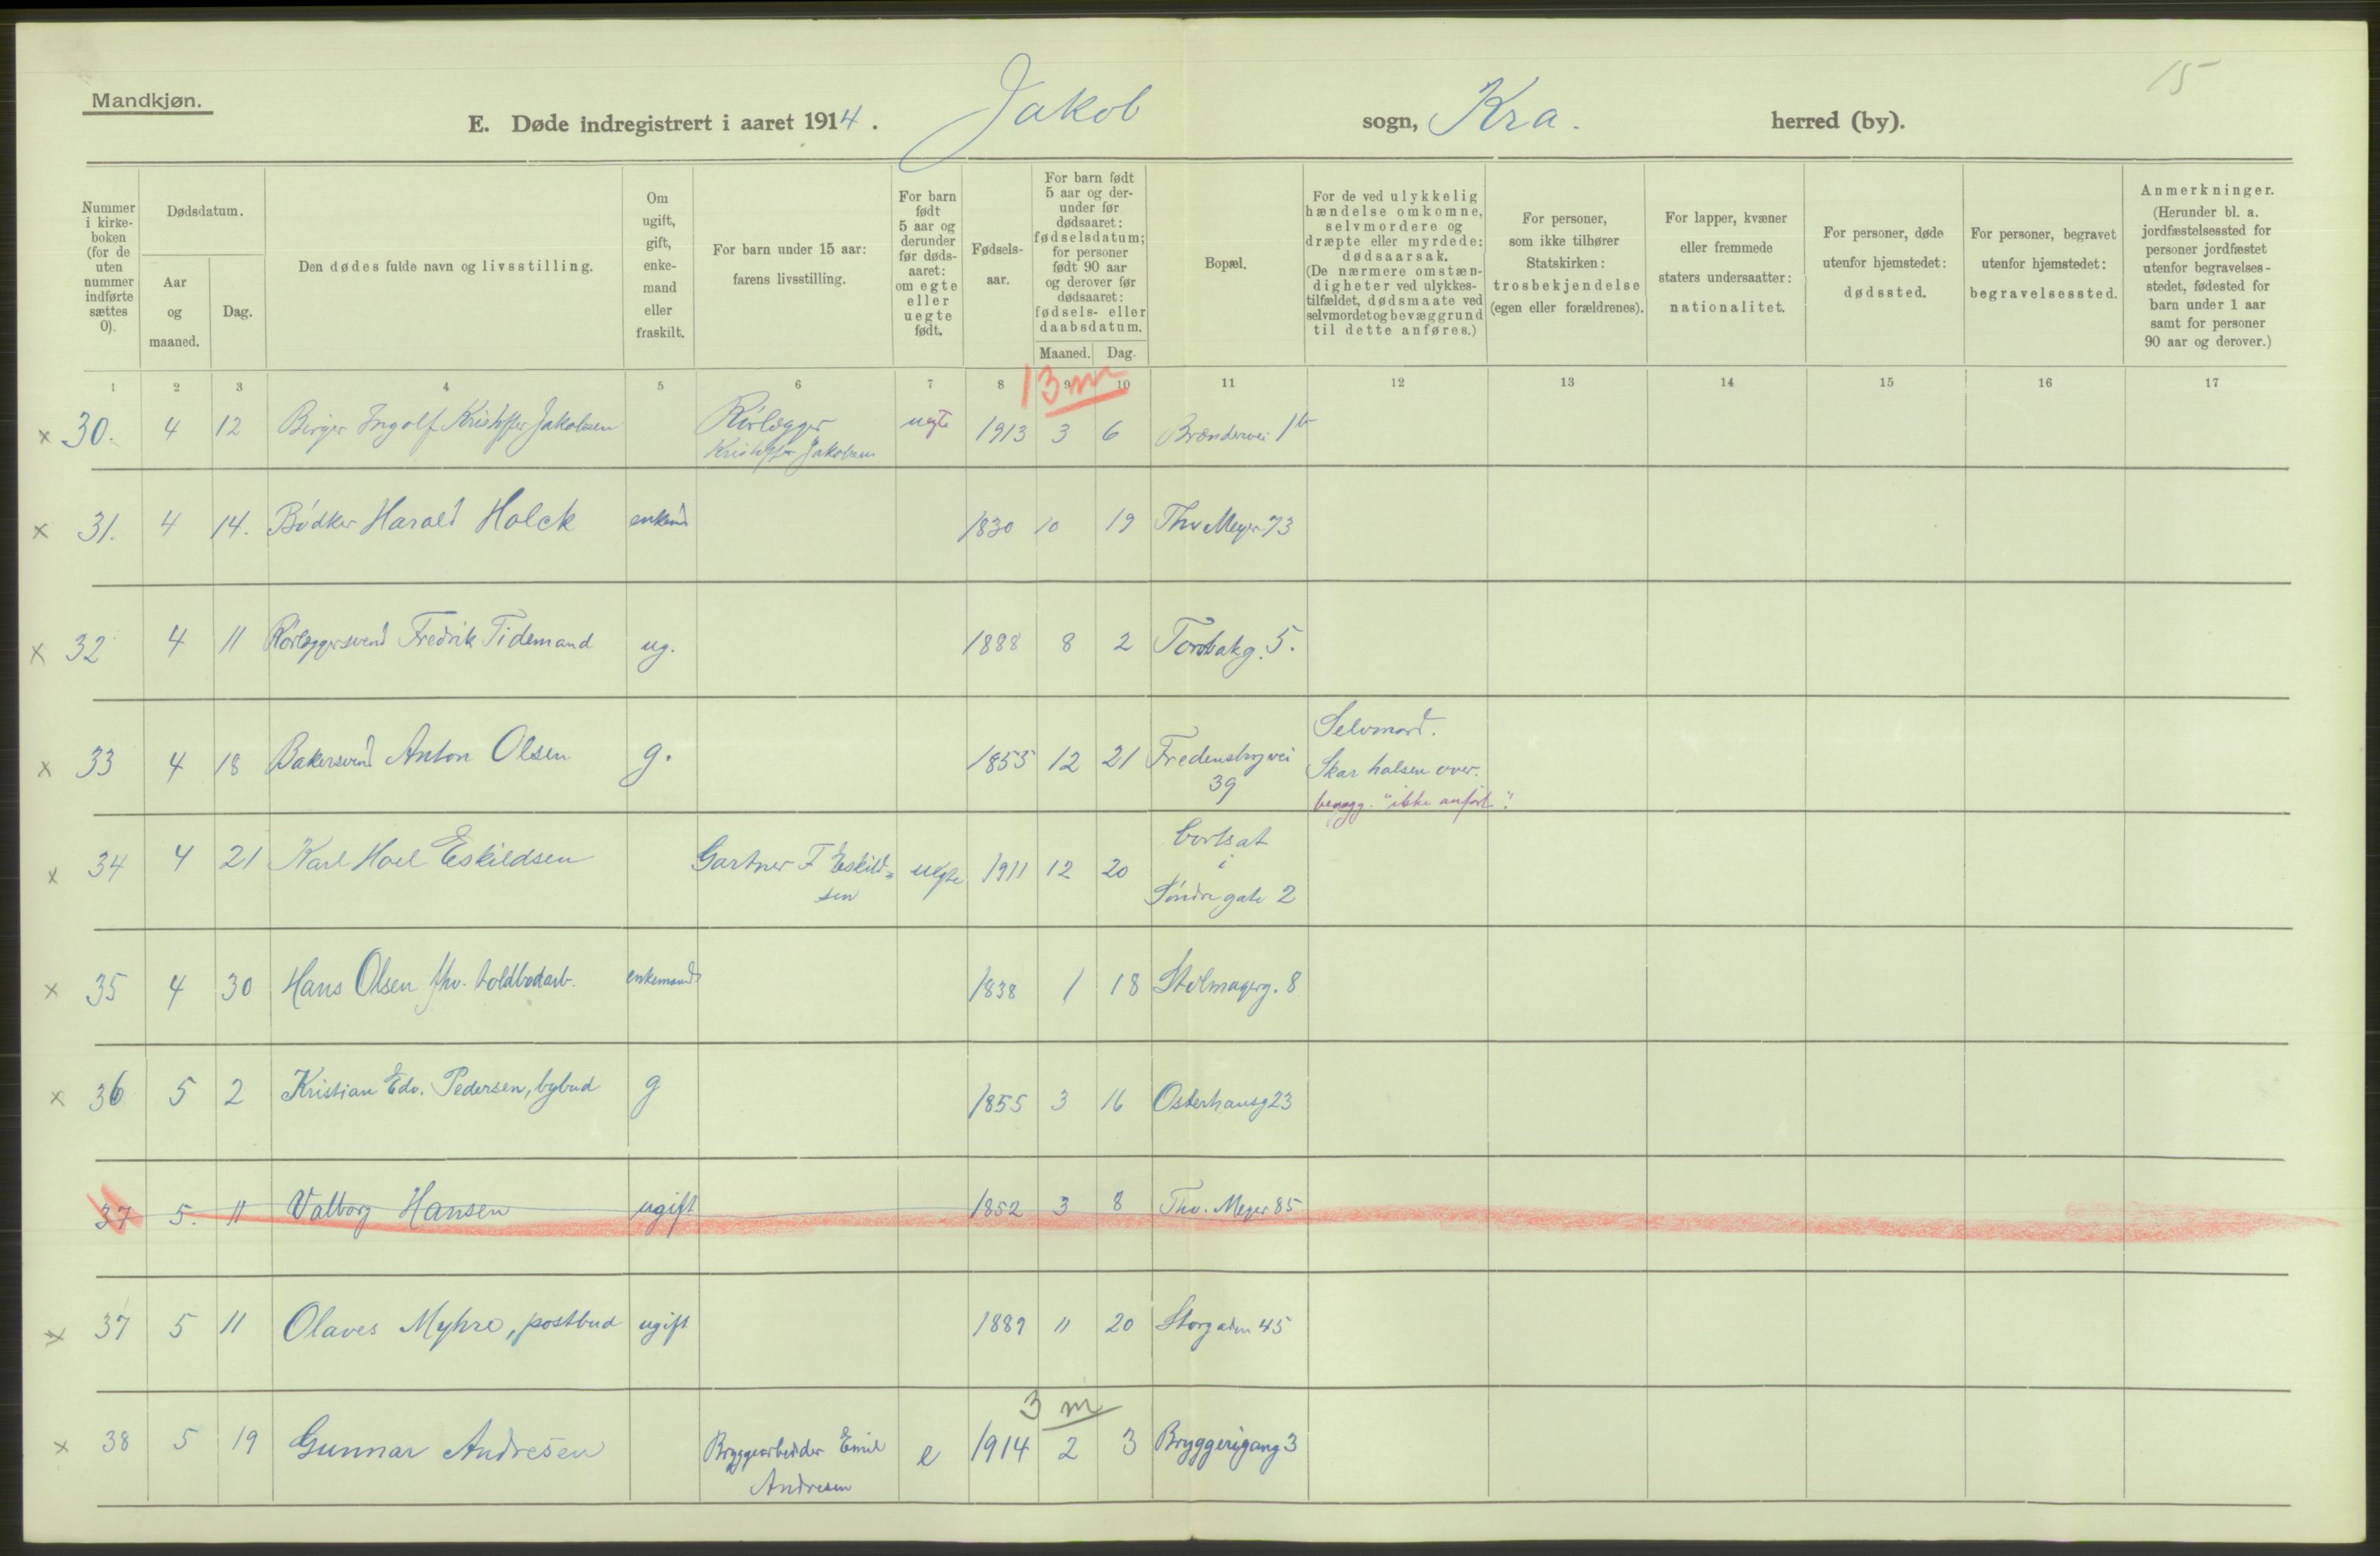 15
Mandkjøn.
E. Døde indregistrert i aaret 1914. Jakob sogn, Kra. herred (by).
Nummer i kirke-boken (for de uten nummer indførte sættes 0).
Dødsdatum.
Aar og maaned.
Dag.
Den dødes fulde navn og livsstilling.
Om ugift, gift, enke-mand eller fraskilt.
For barn under 15 aar: farens livsstilling.
For barn født 5 aar og derunder før døds-aaret: om egte eller uegte født.
Fødsels-aar.
For barn født 5 aar og der-under før dødsaaret: fødselsdatum; for personer født 90 aar og derover før dødsaaret: fødsels- eller daabsdatum.
Maaned. Dag.
Bopæl.
For de ved ulykkelig hændelse omkomne, selvmordere og dræpte eller myrdede: dødsaarsak. (De nærmere omstæn-digheter ved ulykkes-tilfældet, dødsmaate ved selvmordet og bevæggrund til dette anføres.)
For personer, som ikke tilhører Statskirken: trosbekjendelse (egen eller forældrenes).
For lapper, kvæner eller fremmede staters undersaatter: nationalitet.
For personer, døde utenfor hjemstedet: dødssted.
For personer, begravet utenfor hjemstedet: begravelsessted.
Anmerkninger. (Herunder bl. a. jordfæstelsessted for personer jordfæstet utenfor begravelses-stedet, fødested for barn under 1 aar samt for personer 90 aar og derover.)
1 2 3 4 5 6 7 8 9 10 11 12 13 14 15 16 17
13 m
x 30. 4 12 Birger Ingolf Kristoffer Jakobsen Rørlægger uegte 1913 3 6 Brændervei 1 b
Kristoffer Jakobsen
x 31. 4 14. Bødker Harald Holck enkem 1830 10 19 Thv Meyer 73
x 32 4 11 Rørleggersvend Fredrik Tidemand ug. 1888 8 2 Torvbakg. 5.
x 33 4 18 Bakersvend Anton Olsen g. 1855 12 21 Fredensborgvei 39
Selvmord.
Skar halsen over.
bevægg. "ikke anført".
x 34 4 21 Karl Hoel Eskildsen Gartner F Eskild=sen uegte 1911 12 20 bortsat
i
Søndre gate 2
x 35 4 30 Hans Olsen fhv. toldbodarb. enkemand 1838 1 18 Stolmagerg. 8
x 36 5 2 Kristian Edv. Pedersen, bybud g 1855 3 16 Osterhausg 23
37 5. 11 Valborg Hansen ugift 1852 3 8 Thv. Meyer 85
x 37 5 11 Olaves Myhre, postbud ugift 1889 11 20 Storgaten 45
3 m
x 38 5 19 Gunnar Andresen Bryggearbeider Emil e 1914 2 3 Bryggerigang 3
Andresen